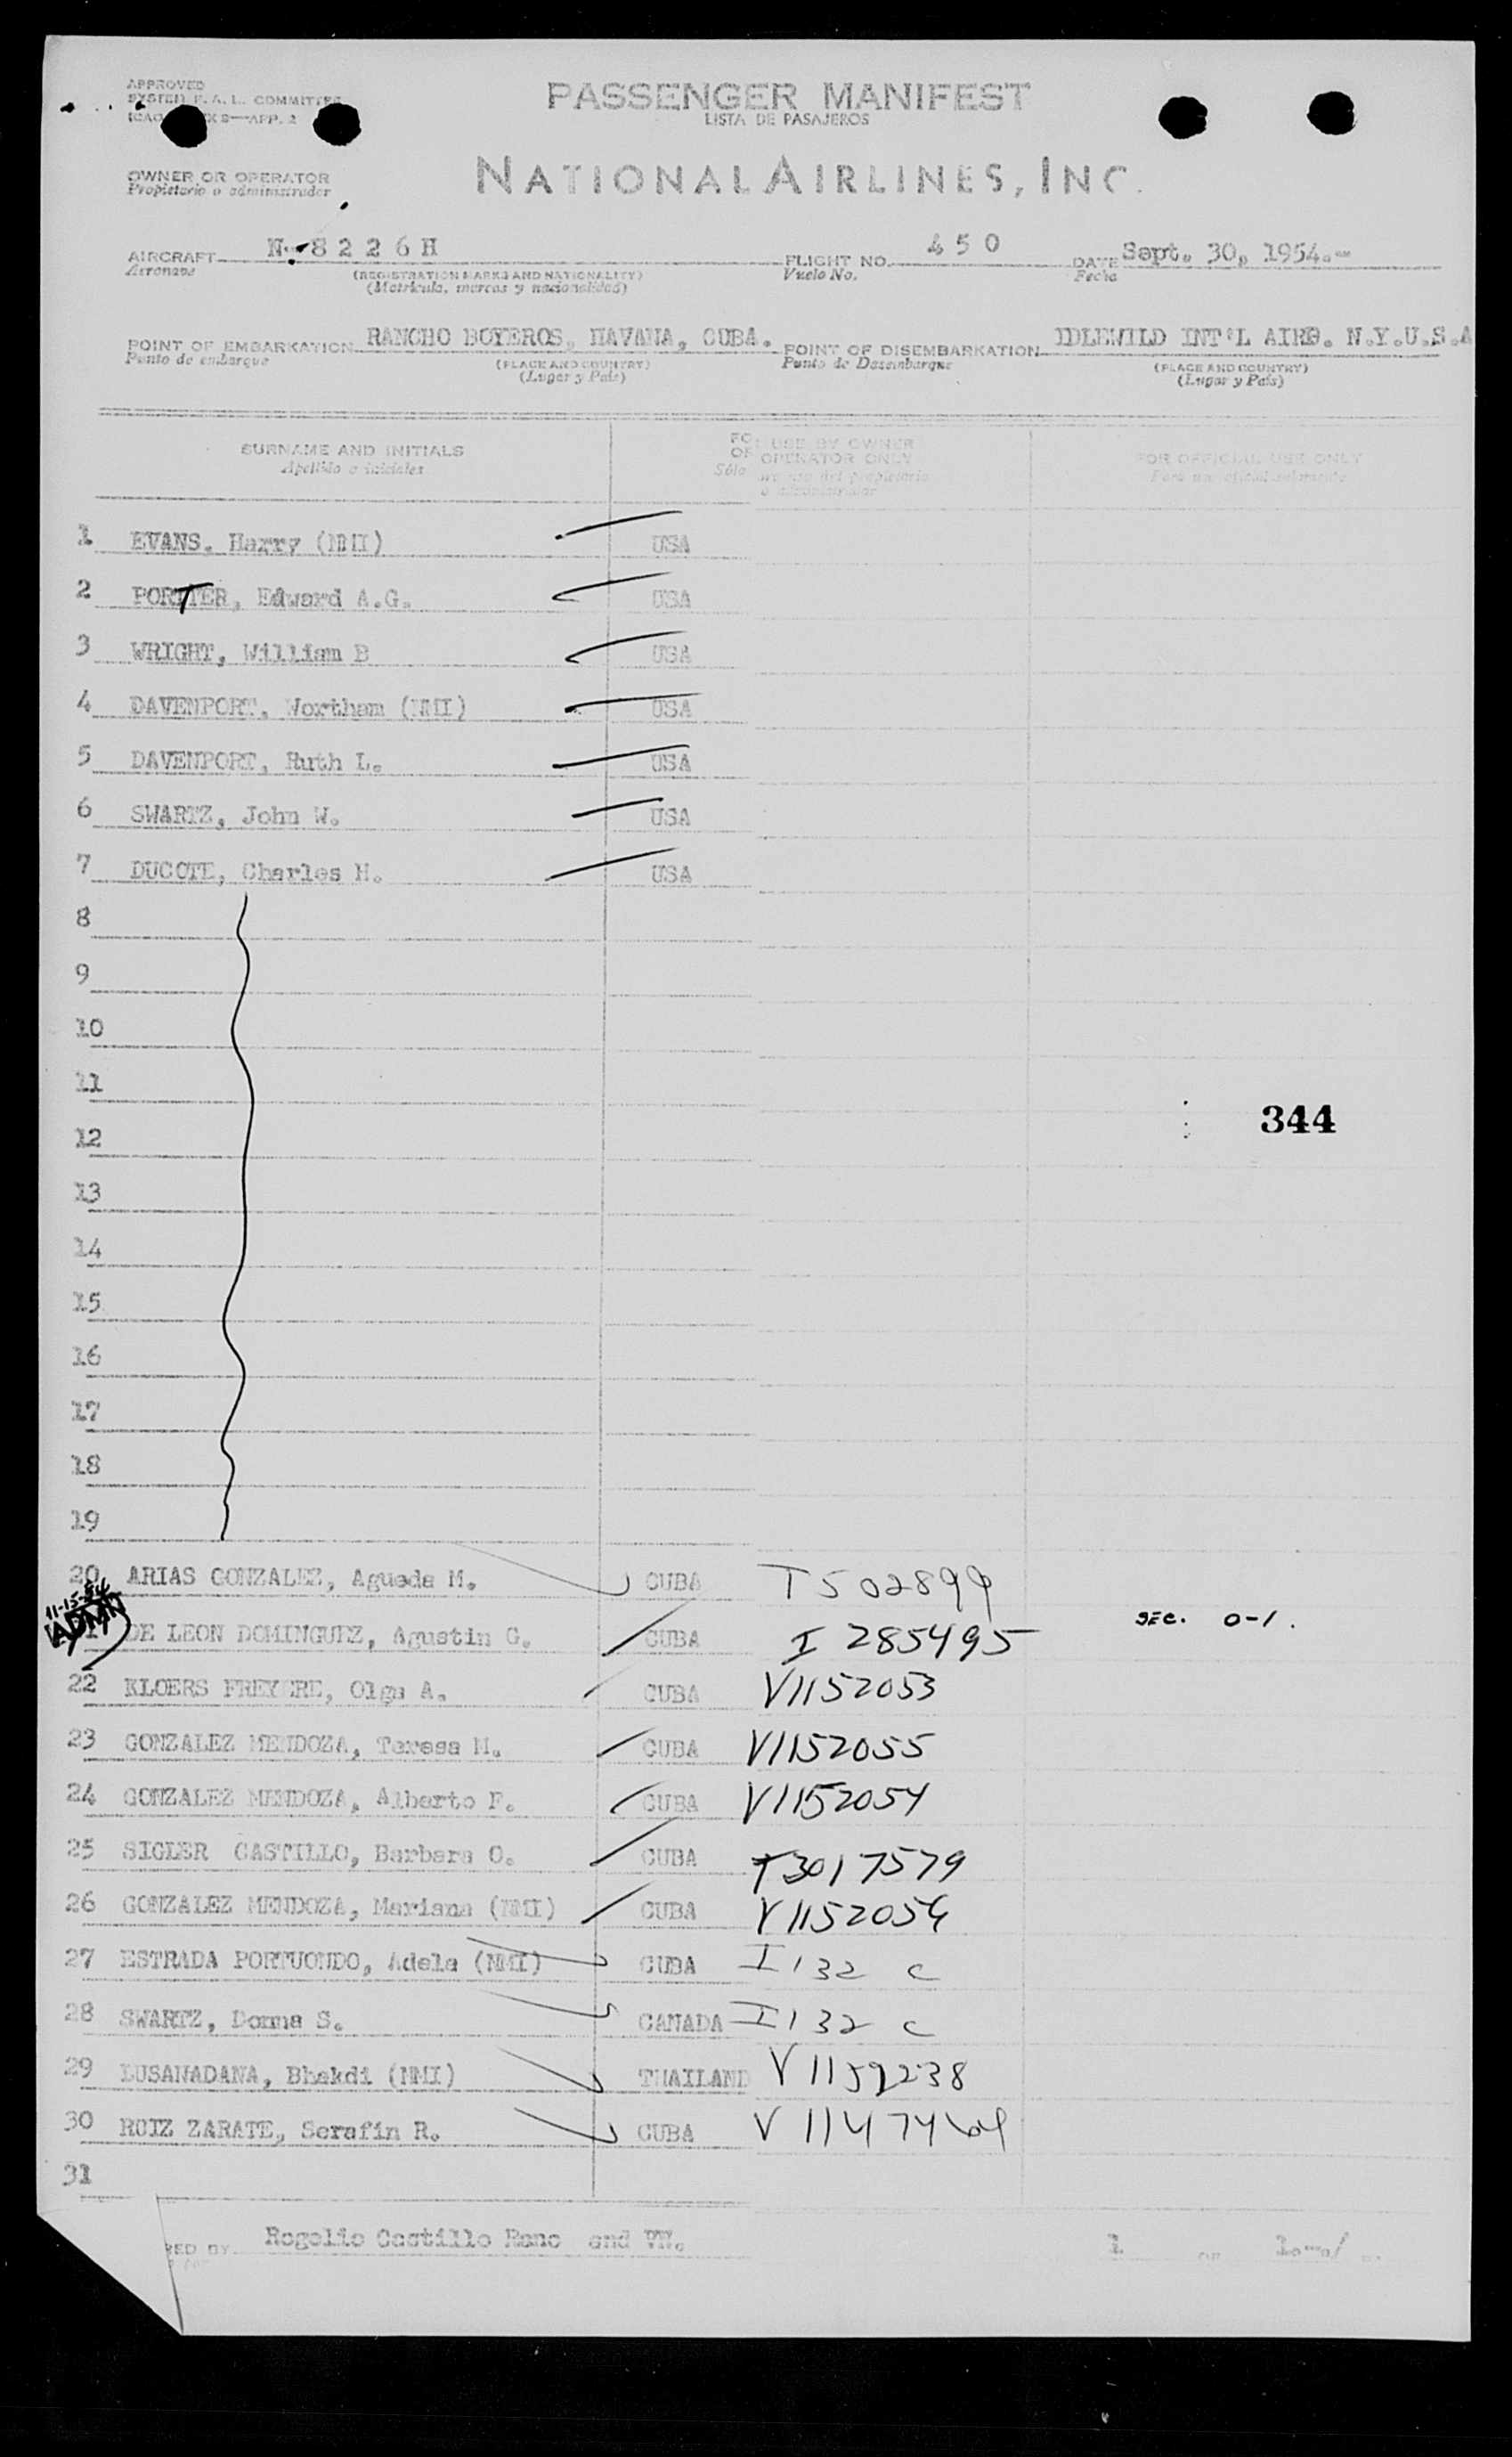 APPROVED
PASSENGER MANIFEST
SYSTEM F. A. L. COMMITTEE
LISTA DE PASAJEROS
ICAO X 9—APP. 2
OWNER OR OPERATOR
Propietario o administrador
NATIONAL AIRLINES, INC.
AIRCRAFT N-8226H FLIGHT NO. 450 DATE Sept. 30, 1954.-
Aeronave (REGISTRATION MARKS AND NATIONALITY) Vuelo No. Fecha
(Matrícula, marcas y nacionalidad)
POINT OF EMBARKATION RANCHO BOYEROS, HAVANA, CUBA. POINT OF DISEMBARKATION IDLEWILD INT'L AIRP. N.Y.U.S.A
Punto de embarque (PLACE AND COUNTRY) Punto de Desembarque (PLACE AND COUNTRY)
(Lugar y País) (Lugar y País)
SURNAME AND INITIALS FOR USE BY OWNER OR OPERATOR ONLY FOR OFFICIAL USE ONLY
Apellido e iniciales Sólo para uso del propietario o administrador Para uso oficial solamente
1 EVANS. Harry (NMI) USA
2 PORTER, Edward A.G. USA
3 WRIGHT, William B USA
4 DAVENPORT. Wortham (NMI) USA
5 DAVENPORT, Ruth L. USA
6 SWARTZ, John W. USA
7 DUCOTE, Charles H. USA
8
9
10
11
344
12
13
14
15
16
17
18
19
20 ARIAS GONZALEZ, Agueda M. CUBA T502899
11-15-54
ADMN
DE LEON DOMINGUEZ, Agustin G. CUBA I 285495 SEC. 0-1.
22 KLOERS FREYERE, Olga A. CUBA V1152053
23 GONZALEZ MENDOZA, Teresa M. CUBA V1152055
24 GONZALEZ MENDOZA, Alberto F. CUBA V1152054
25 SIGLER CASTILLO, Barbara O. CUBA T3017579
26 GONZALEZ MENDOZA, Mariana (NMI) CUBA V1152056
27 ESTRADA PORTUONDO, Adela (NMI) CUBA I132 C
28 SWARTZ, Donna S. CANADA I132 C
29 BUSANADANA, Bhakdi (NMI) THAILAND V1159238
30 RUIZ ZARATE, Serafin R. CUBA V 1147464
31
RED BY Rogelio Castillo Rano and VW. 1 OF